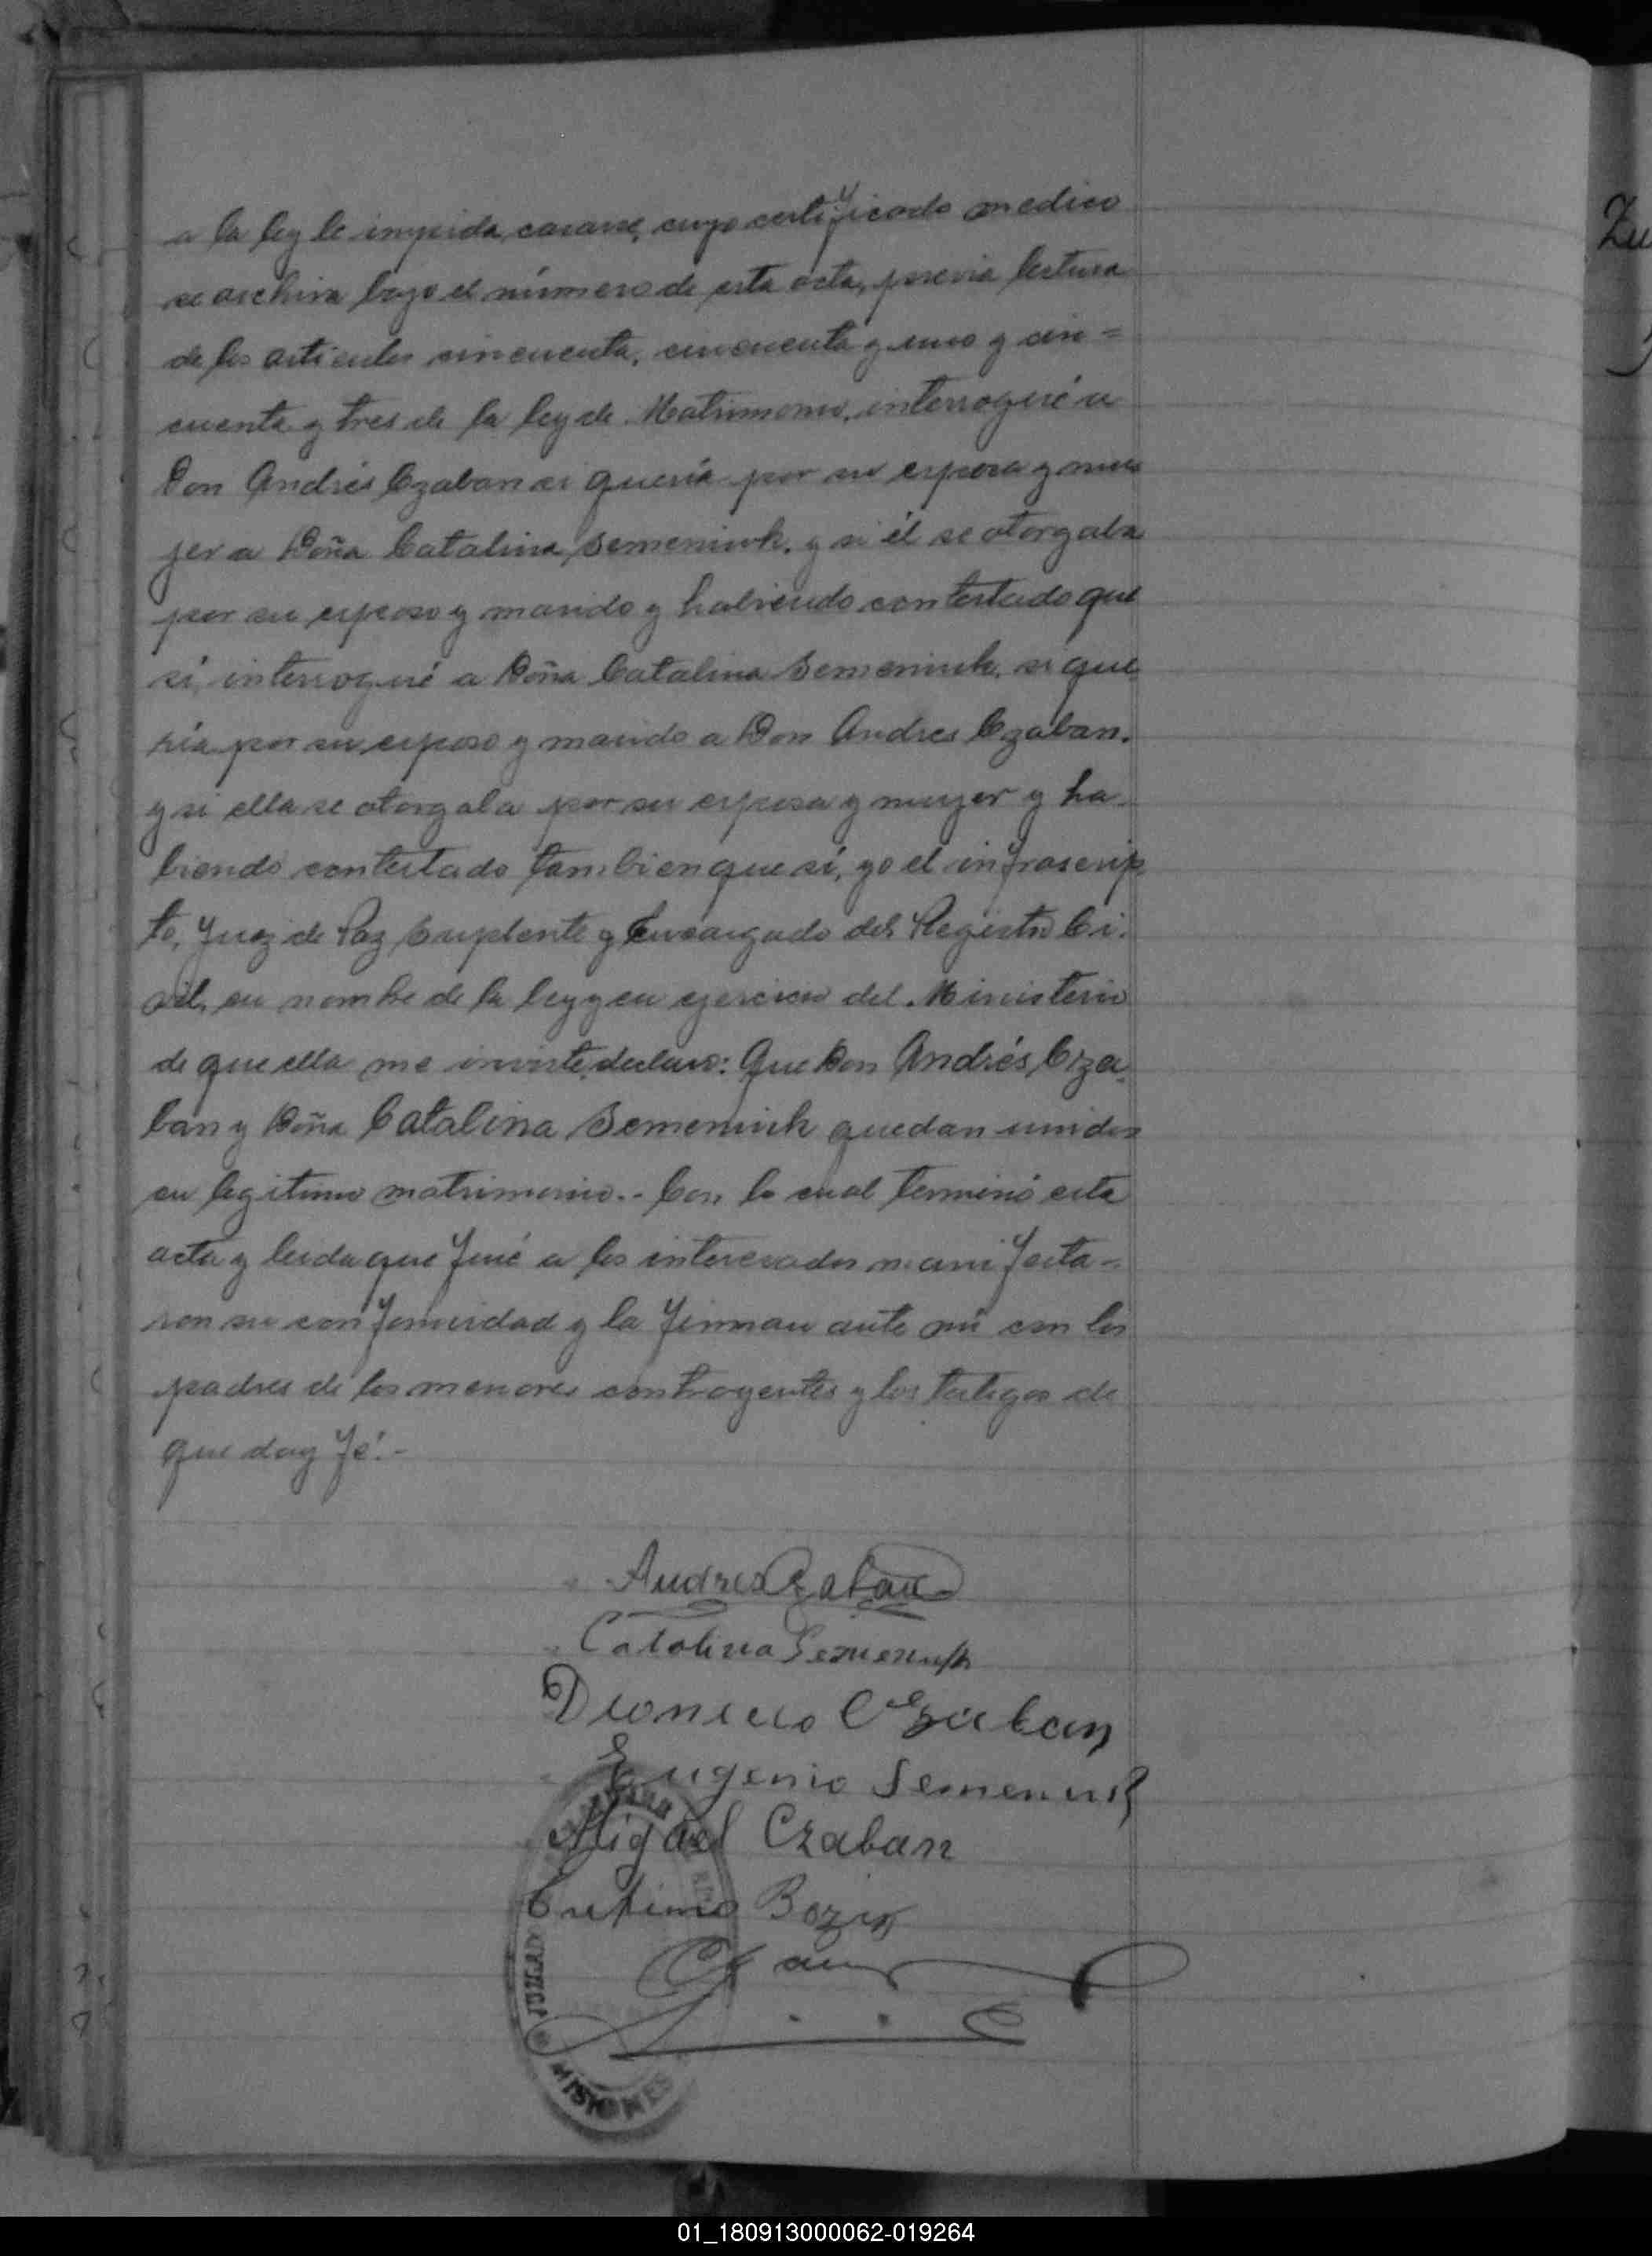 a la ley le impida casarse, cuyo certificado medico
se archiva bajo el número de esta acta, previa lectura
de los articulos cincuenta, cincuenta y uno y cin=
cuenta y tres de la ley de Matrimonio, interrogué a
Don Andrés Czaban si quería por su esposa y mu
jer a Doña Catalina Semeniuk, y si él se otorgaba
por su esposo y marido y habiendo contestado que
sí, interrogué a Doña Catalina Semeniuk, si que
ría por su esposo y marido a Don Andres Czaban,
y si ella se otorgaba por su esposa y mujer y ha-
biendo contestado tambien que sí, yo el infrascrip
to, Juez de Paz Suplente y Encargado del Registro Ci-
vil, en nombre de la ley y en ejercicio del Ministerio
de que ella me inviste, declaro: Que Don Andrés Cza
ban y Doña Catalina Semeniuk quedan unidos
en legitimo matrimonio.- Con lo cual terminó esta
acta y leida que fué a los interesados manifesta-
ron su conformidad y la firman ante mí con los
padres de los menores contrayentes y los testigos de
que doy fé.-
Andres Czaban
Catalina Semeniuk
Dionicio Czaban
Eugenio Semeniuk
Miguel Czaban
Eufimo
MISIONES
Zu
01_180913000062-019264